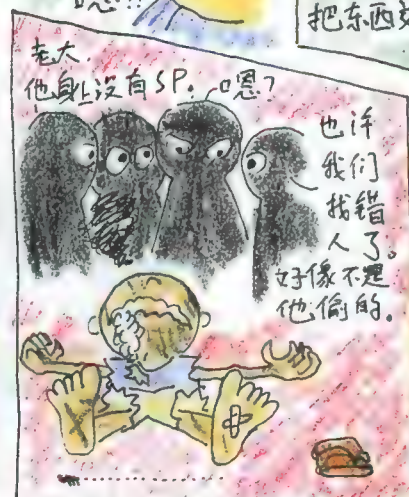 嗯
把东西
老大.
他身上没有SP.
嗯?
也许
我们
找错
人了。
好像不是
他偷的.